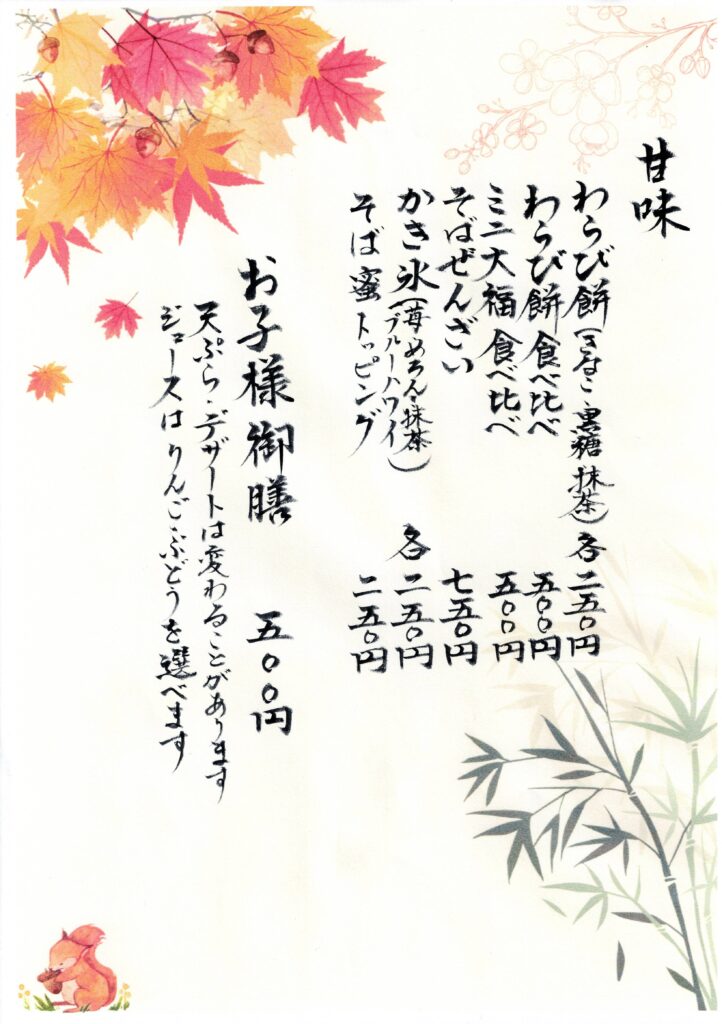 甘味
わらび餅(きなこ・黒糖・抹茶)各二五〇円
わらび餅食べ比べ 五〇〇円
ミニ大福食べ比べ 五〇〇円
そばぜんざい 七五〇円
かき氷(苺・めろん・抹茶 ブルーハワイ)各二五〇円
そば蜜トッピング 二五〇円
お子様御膳 五〇〇円
天ぷら・デザートは変わることがあります
ジュースはりんご・ぶどうを選べます